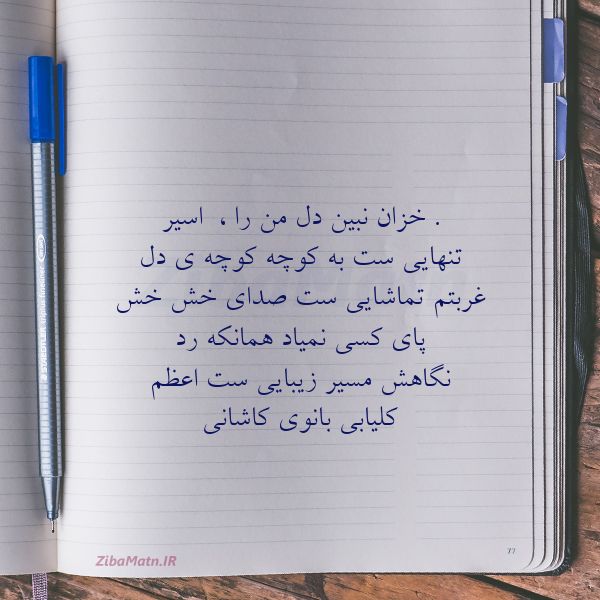 . خزان نبین دل من را ، اسیر
تنهایی ست به کوچه کوچه ی دل
غربتم تماشایی ست صدای خش خش
پای کسی نمیاد همانکه رد
نگاهش مسیر زیبایی ست اعظم
کلیابی بانوی کاشانی
ZibaMatn.IR
77